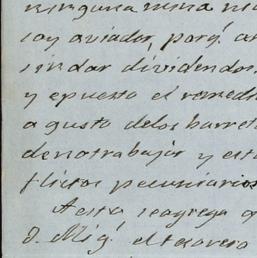 ninguna mina ni
soy aviador, porq.e an
sin dar dividendos
y epuesto el remedi
a gusto delos barret
denotrabajar y esta
flictos pecuniarios
Aesto seagrega q
D. Mig.l el tesorero